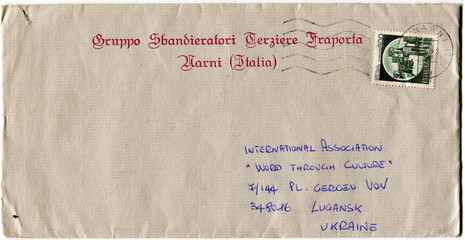 Gruppo Sbandieratori Terziere Fraporta
Narni (Italia)
NARNI
INTERNATIONAL ASSOCIATION
"WORD THROUGH CULTURE"
7/144 PL. GEROEV VOV
348016 LUGANSK
UKRAINE